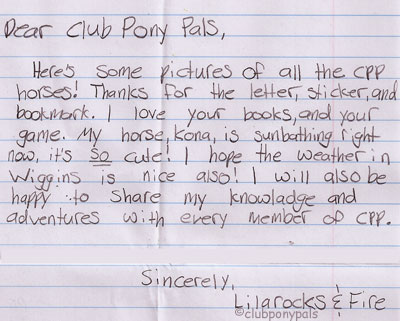 Dear Club Pony Pals,
Here's some pictures of all the CPP
horses! Thanks for the letter, sticker, and
bookmark. I love your books, and your
game. My horse, Kona, is sunbathing right
now, it's so cute! I hope the weather in
Wiggins is nice also! I will also be
happy to share my knowladge and
adventures with every member of CPP.
Sincerely,
Lilarocks & Fire
©clubponypals